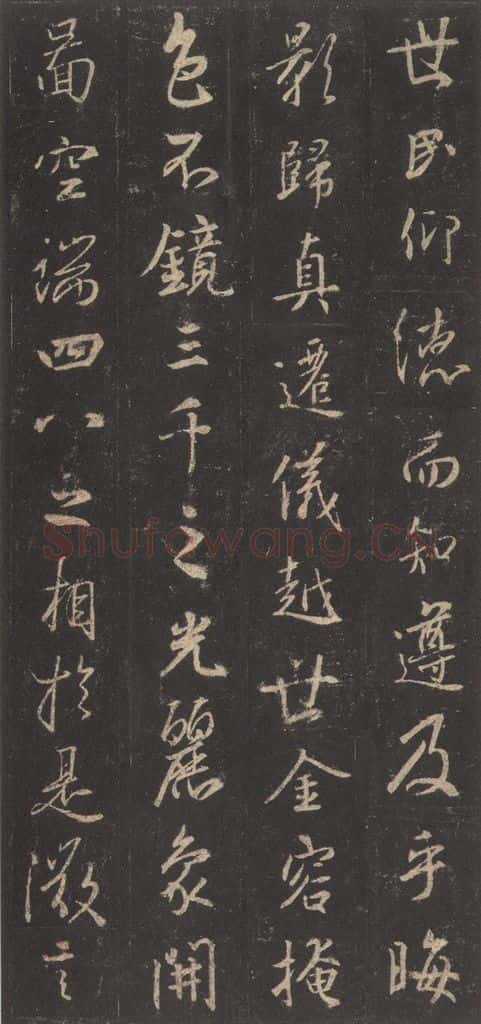 世民仰德而知遵及乎晦
影歸真遷儀越世金容掩
色不鏡三千之光麗象開
啚空端四八之相於是微言
Shufawang.CN